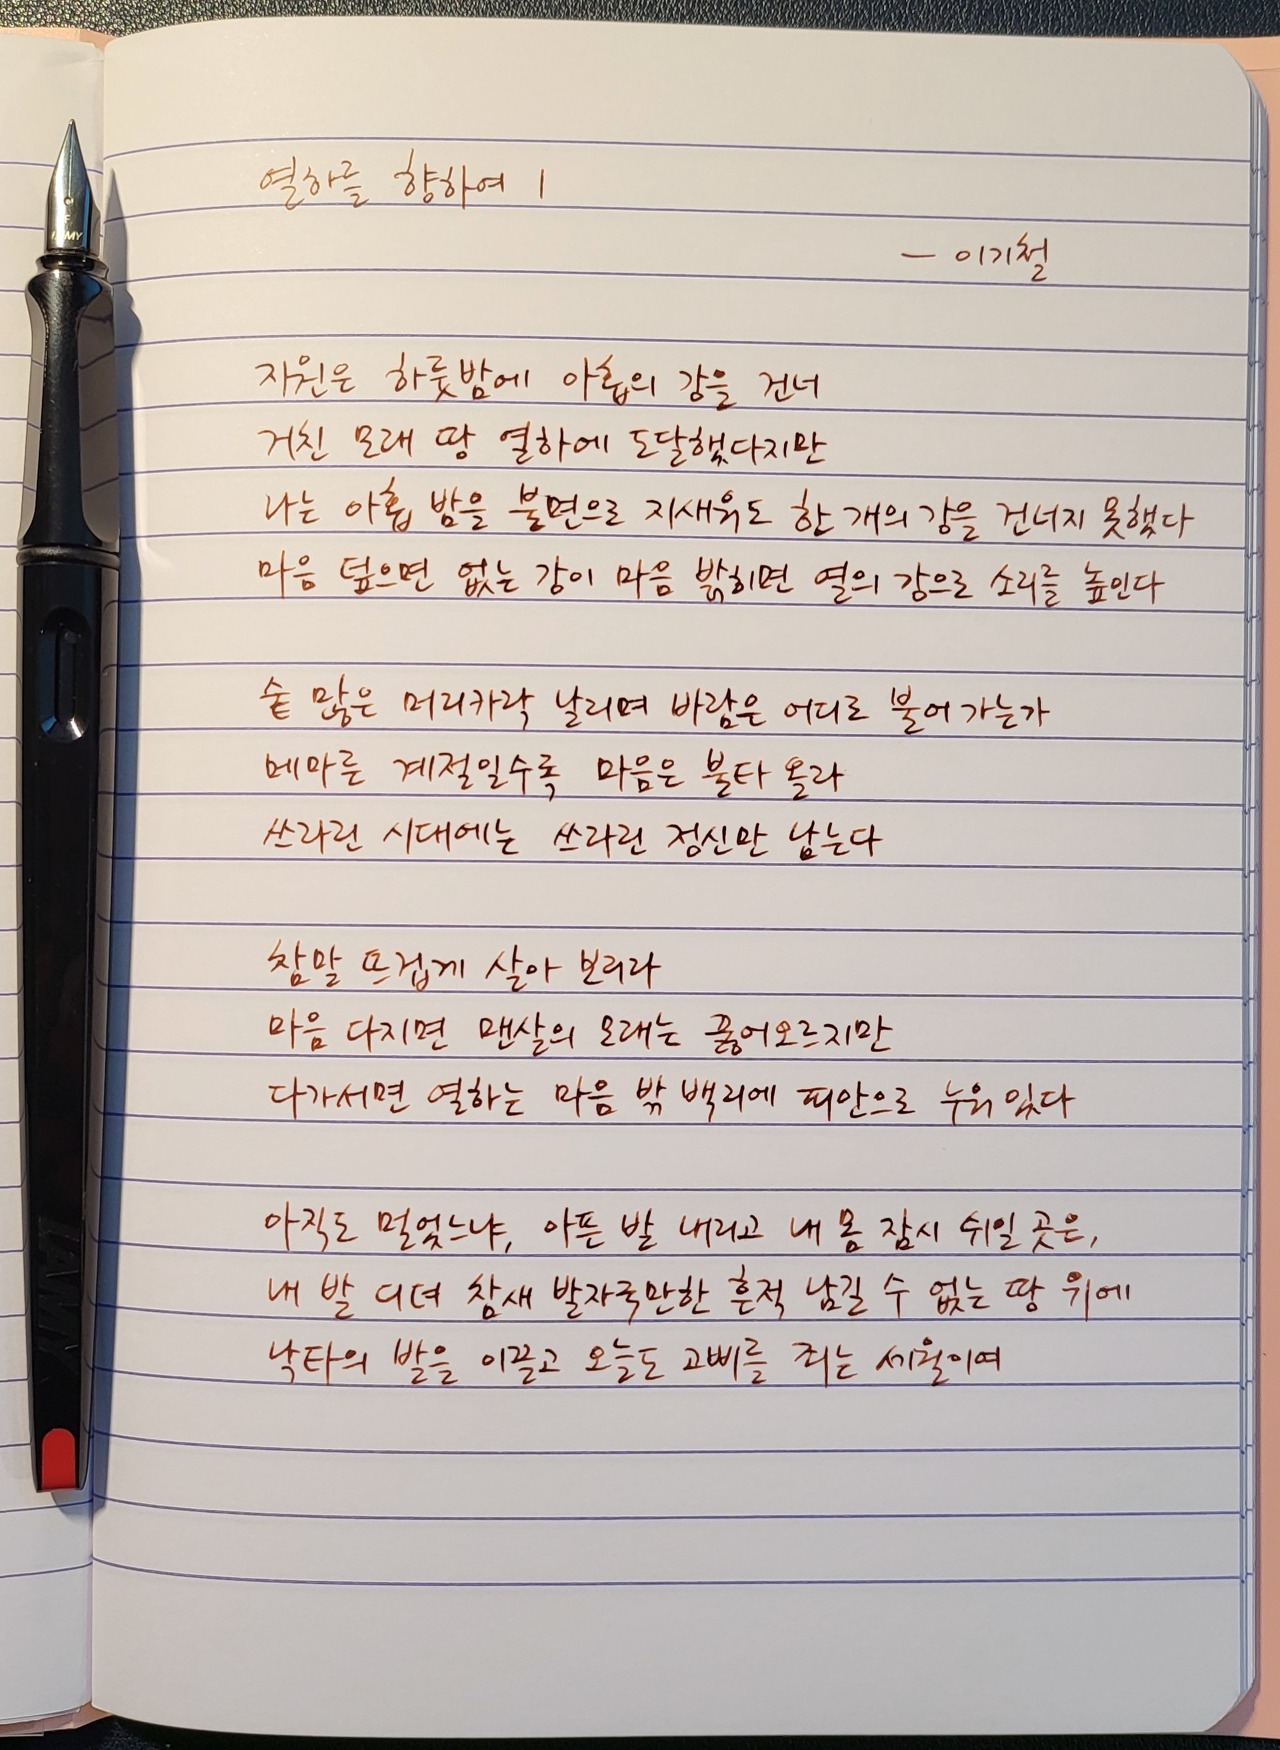 열하를 향하여 1
— 이기철
지원은 하룻밤에 아홉의 강을 건너
거친 모래 땅 열하에 도달했다지만
나는 아홉 밤을 불면으로 지새워도 한 개의 강을 건너지 못했다
마음 덮으면 없는 강이 마음 밝히면 열의 강으로 소리를 높인다
숱 많은 머리카락 날리며 바람은 어디로 불어 가는가
메마른 계절일수록 마음은 불타 올라
쓰라린 시대에는 쓰라린 정신만 남는다
참말 뜨겁게 살아 보리라
마음 다지면 맨살의 모래는 끓어오르지만
다가서면 열하는 마음 밖 백리에 피안으로 누워 있다
아직도 멀었느냐, 아픈 발 내리고 내 몸 잠시 쉬일 곳은,
내 발 디뎌 참새 발자국만한 흔적 남길 수 없는 땅 위에
낙타의 발을 이끌고 오늘도 고삐를 죄는 세월이여
LAMY
F
LAMY